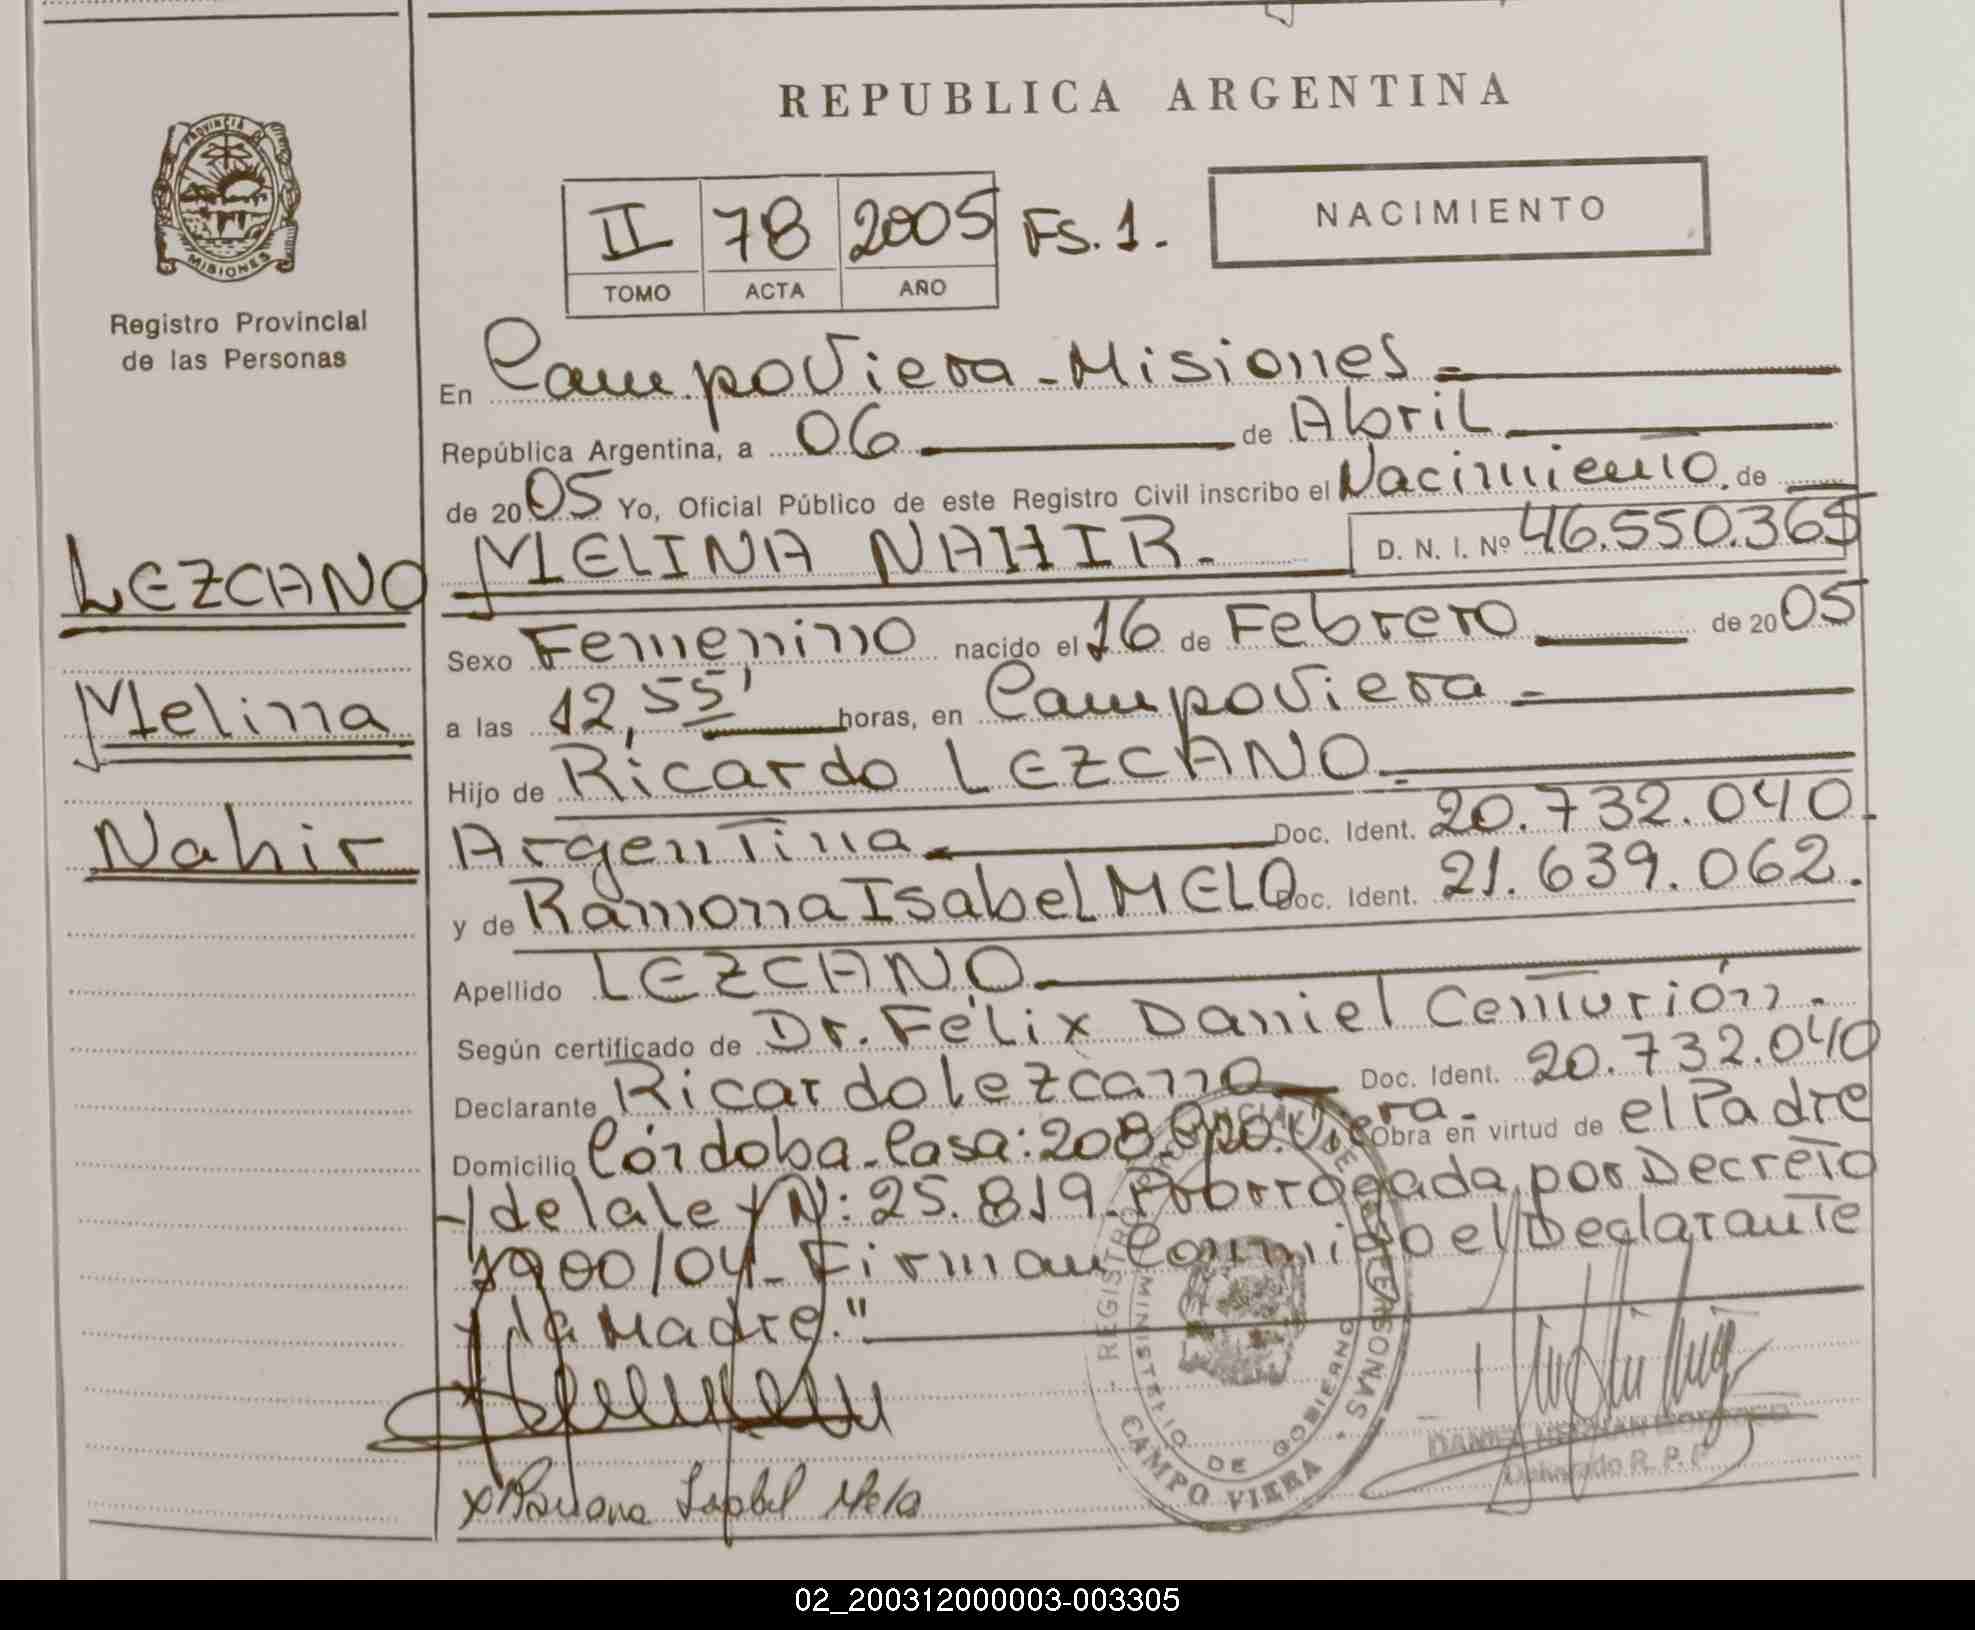 REPUBLICA ARGENTINA
PROVINCIA DE
MISIONES
Registro Provincial
de las Personas
II 78 2005 Fs. 1.
TOMO ACTA AÑO
NACIMIENTO
En Campo Viera - Misiones
República Argentina, a 06 de Abril
de 2005 Yo, Oficial Público de este Registro Civil inscribo el Nacimiento de
LEZCANO
MELINA NAHIR. D. N. I. Nº 46.550.365
Sexo Femenino nacido el 16 de Febrero de 2005
Melina
a las 12,55' horas, en Campo Viera
Hijo de Ricardo LEZCANO
Nahir
Argentina Doc. Ident. 20.732.040.
y de Ramona Isabel MELO Doc. Ident. 21.639.062.
Apellido LEZCANO
Según certificado de Dr. Félix Daniel Centurión.
Declarante Ricardo Lezcano Doc. Ident. 20.732.040
Domicilio Córdoba - Casa: 208. Cpo. Viera. Obra en virtud de el Padre
y de la ley N: 25.819. Prorrogada por Decreto
1900/04 - Firman Conmigo el Declarante
y la Madre."
REGISTRO PROVINCIAL DE LAS PERSONAS
MINISTERIO DE GOBIERNO
CAMPO VIERA
x Ramona Isabel Melo
DANIEL HERNAN
Delegado R. P. P.
02_200312000003-003305